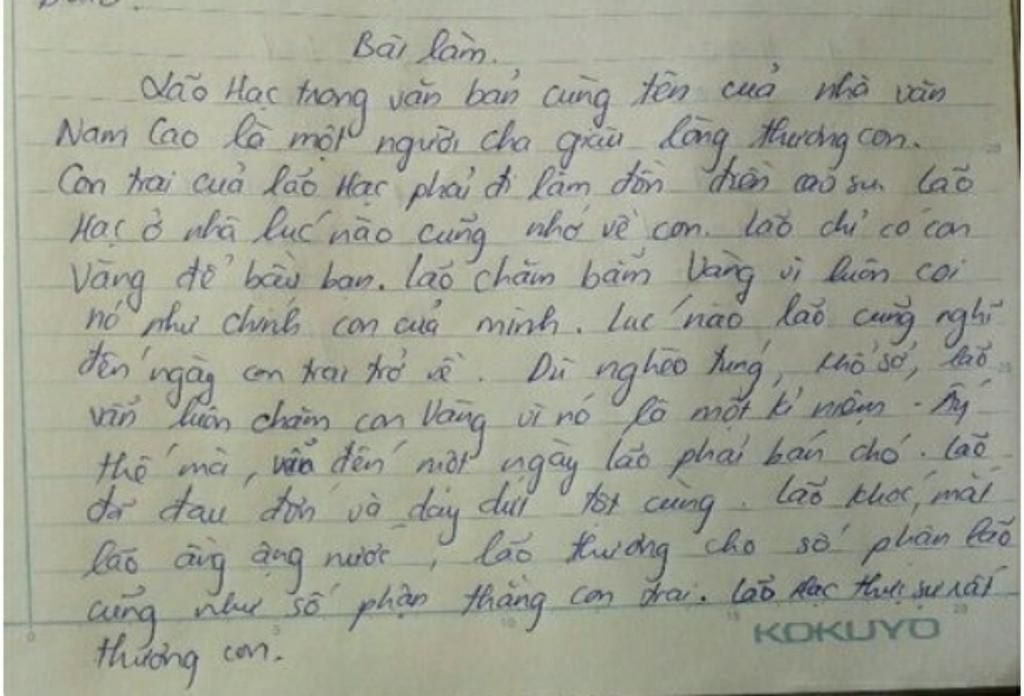 Bài làm.
Lão Hạc trong văn bản cùng tên của nhà văn
Nam Cao là một người cha giàu lòng thương con.
Con trai của lão Hạc phải đi làm đồn điền cao su. Lão
Hạc ở nhà lúc nào cũng nhớ về con. Lão chỉ có con
Vàng để bầu bạn. Lão chăm bẵm Vàng vì luôn coi
nó như chính con của mình. Lúc nào lão cũng nghĩ
đến ngày con trai trở về. Dù nghèo túng, khổ sở, lão
vẫn luôn chăm con Vàng vì nó là một kỉ niệm. Ấy
thế mà, vẫn đến một ngày lão phải bán chó. Lão
đã đau đớn và day dứt tột cùng. Lão khóc, mắt
lão ầng ậng nước, lão thương cho số phận lão
cũng như số phận thằng con trai. Lão Hạc thực sự rất
thương con.
0 5 10 15 20
KOKUYO